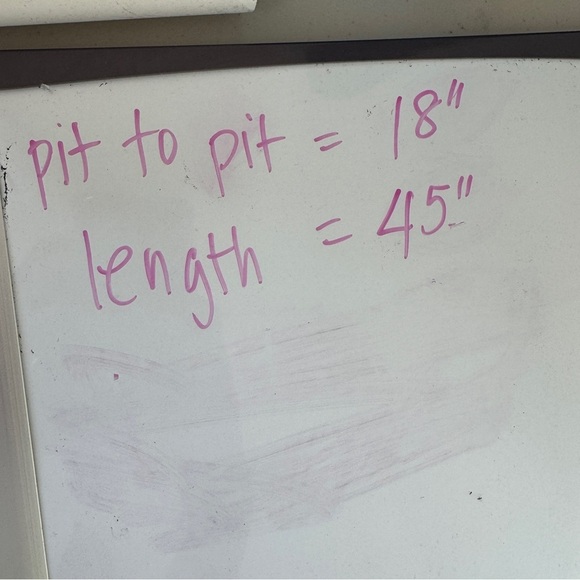 pit to pit = 18"
length = 45"